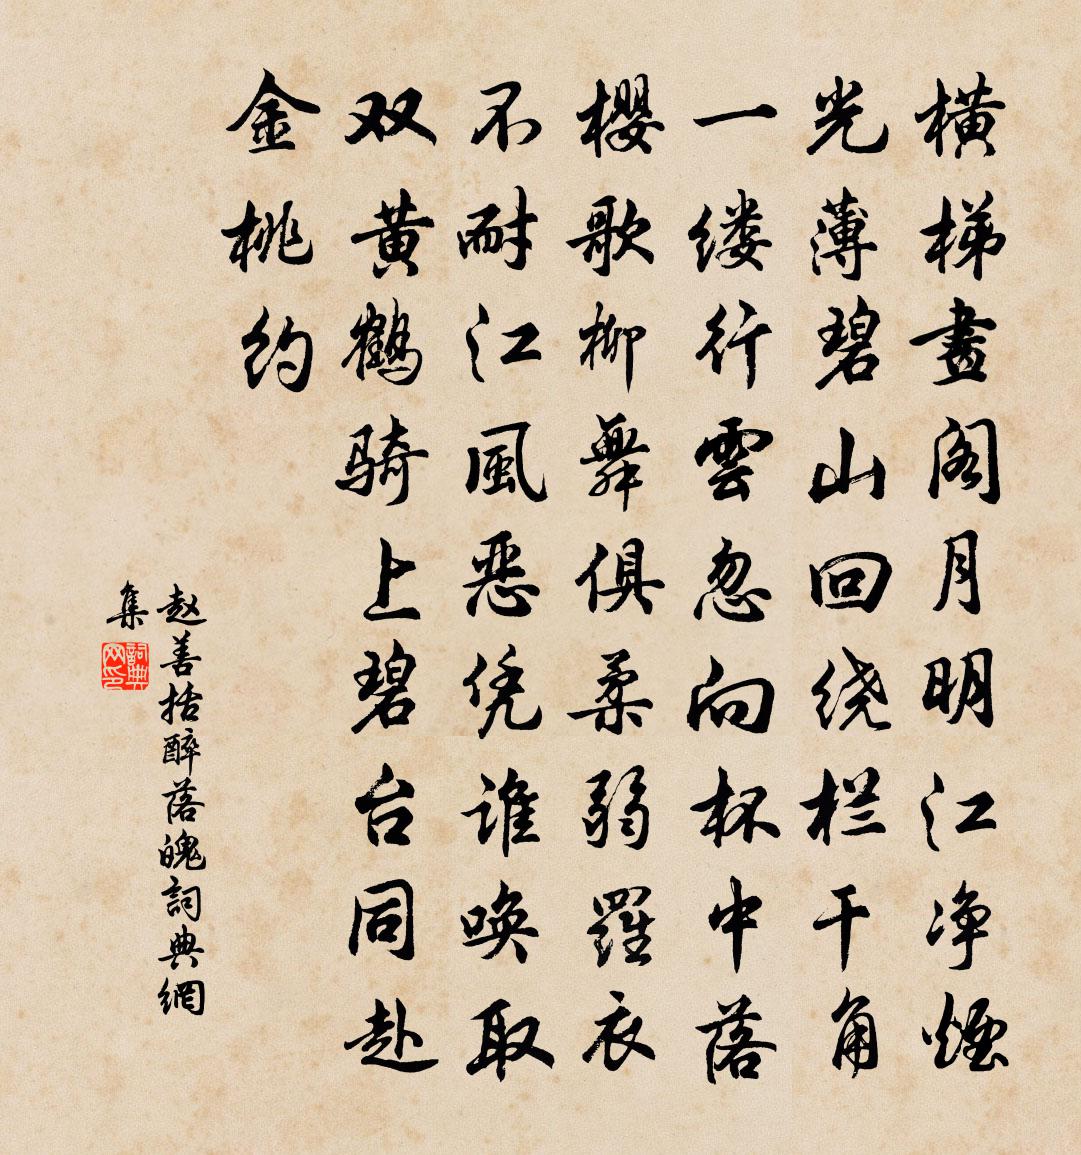 横梯畫阁月明江净煙
光薄碧山回绕栏干角
一缕行雲忽向杯中落
櫻歌柳舞俱柔弱羅衣
不耐江風恶凭谁唤取
双黄鹤骑上碧台同赴
金桃约
赵善括醉落魄詞典網
集
詞典
网印